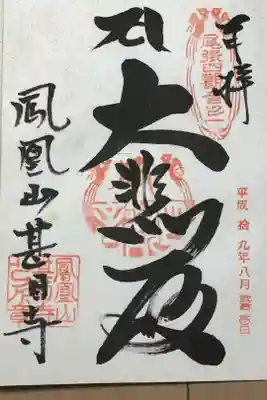 奉拝
尾張四観音之一
平成 拾 九年八月 日
大悲殿
鳳凰山甚目寺
鳳凰山